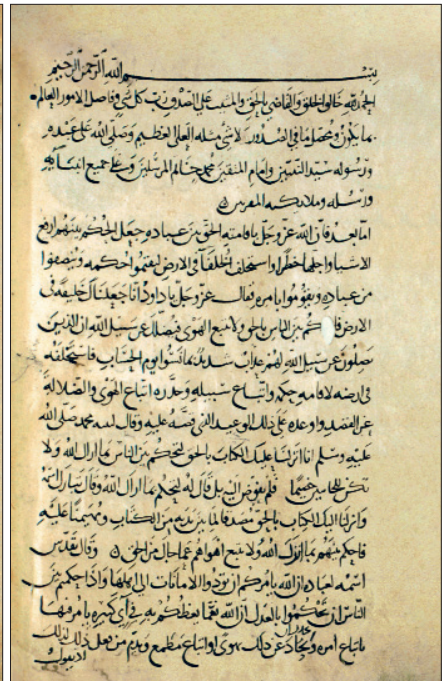 بسم الله الرحمن الرحيم
الحمد لله خالق الخلق والقاضي بالحق والمثيب على الصدق رب كل شي وفاصل الامور العالم
بما يكون ومحصل ما في الصدور لا شي مثله العلي العظيم وصلى الله على عبده
ورسوله سيد النبيين وامام المتقين محمد خاتم المرسلين وعلى جميع انبيائه
ورسله وملائكته المقربين
اما بعد فان الله عز وجل باقامته الحق بين عباده جعل الحكم بينهم ارفع
الاشيا واجلها خطرا واستخلف الخلفا في الارض ليقيموا حكمه وينصفوا
من عباده ويقوموا بامره فقال عز وجل يا داود انا جعلناك خليفة في
الارض فاحكم بين الناس بالحق ولا تتبع الهوى فيضلك عن سبيل الله ان الذين
يضلون عن سبيل الله لهم عذاب شديد بما نسوا يوم الحساب فاستخلفه
في ارضه لاقامة حكمه واتباع سبيله وحذره اتباع الهوى والضلالة
عن القصد واوعده على ذلك الوعيد الذي قصه عليه وقال لنبيه محمد صلى الله
عليه وسلم انا انزلنا اليك الكتاب بالحق لتحكم بين الناس بما اراك الله ولا
تكن للخائنين خصيما فلم يفوض اليه بل قال له لتحكم بما اراك الله وقال تبارك اسمه
وانزلنا اليك الكتاب بالحق مصدقا لما بين يديه من الكتاب ومهيمنا عليه
فاحكم بينهم بما انزل الله ولا تتبع اهواهم عما جاك من الحق وقال تقدس
اسمه لعباده ان الله يامركم ان تؤدوا الامانات الى اهلها واذا حكمتم بين
الناس ان تحكموا بالعدل ان الله نعما يعظكم به في آي كثيرة يامر فيها
باتباع امره عن ذلك بهوى او اتباع مطمع من فعل ذلك